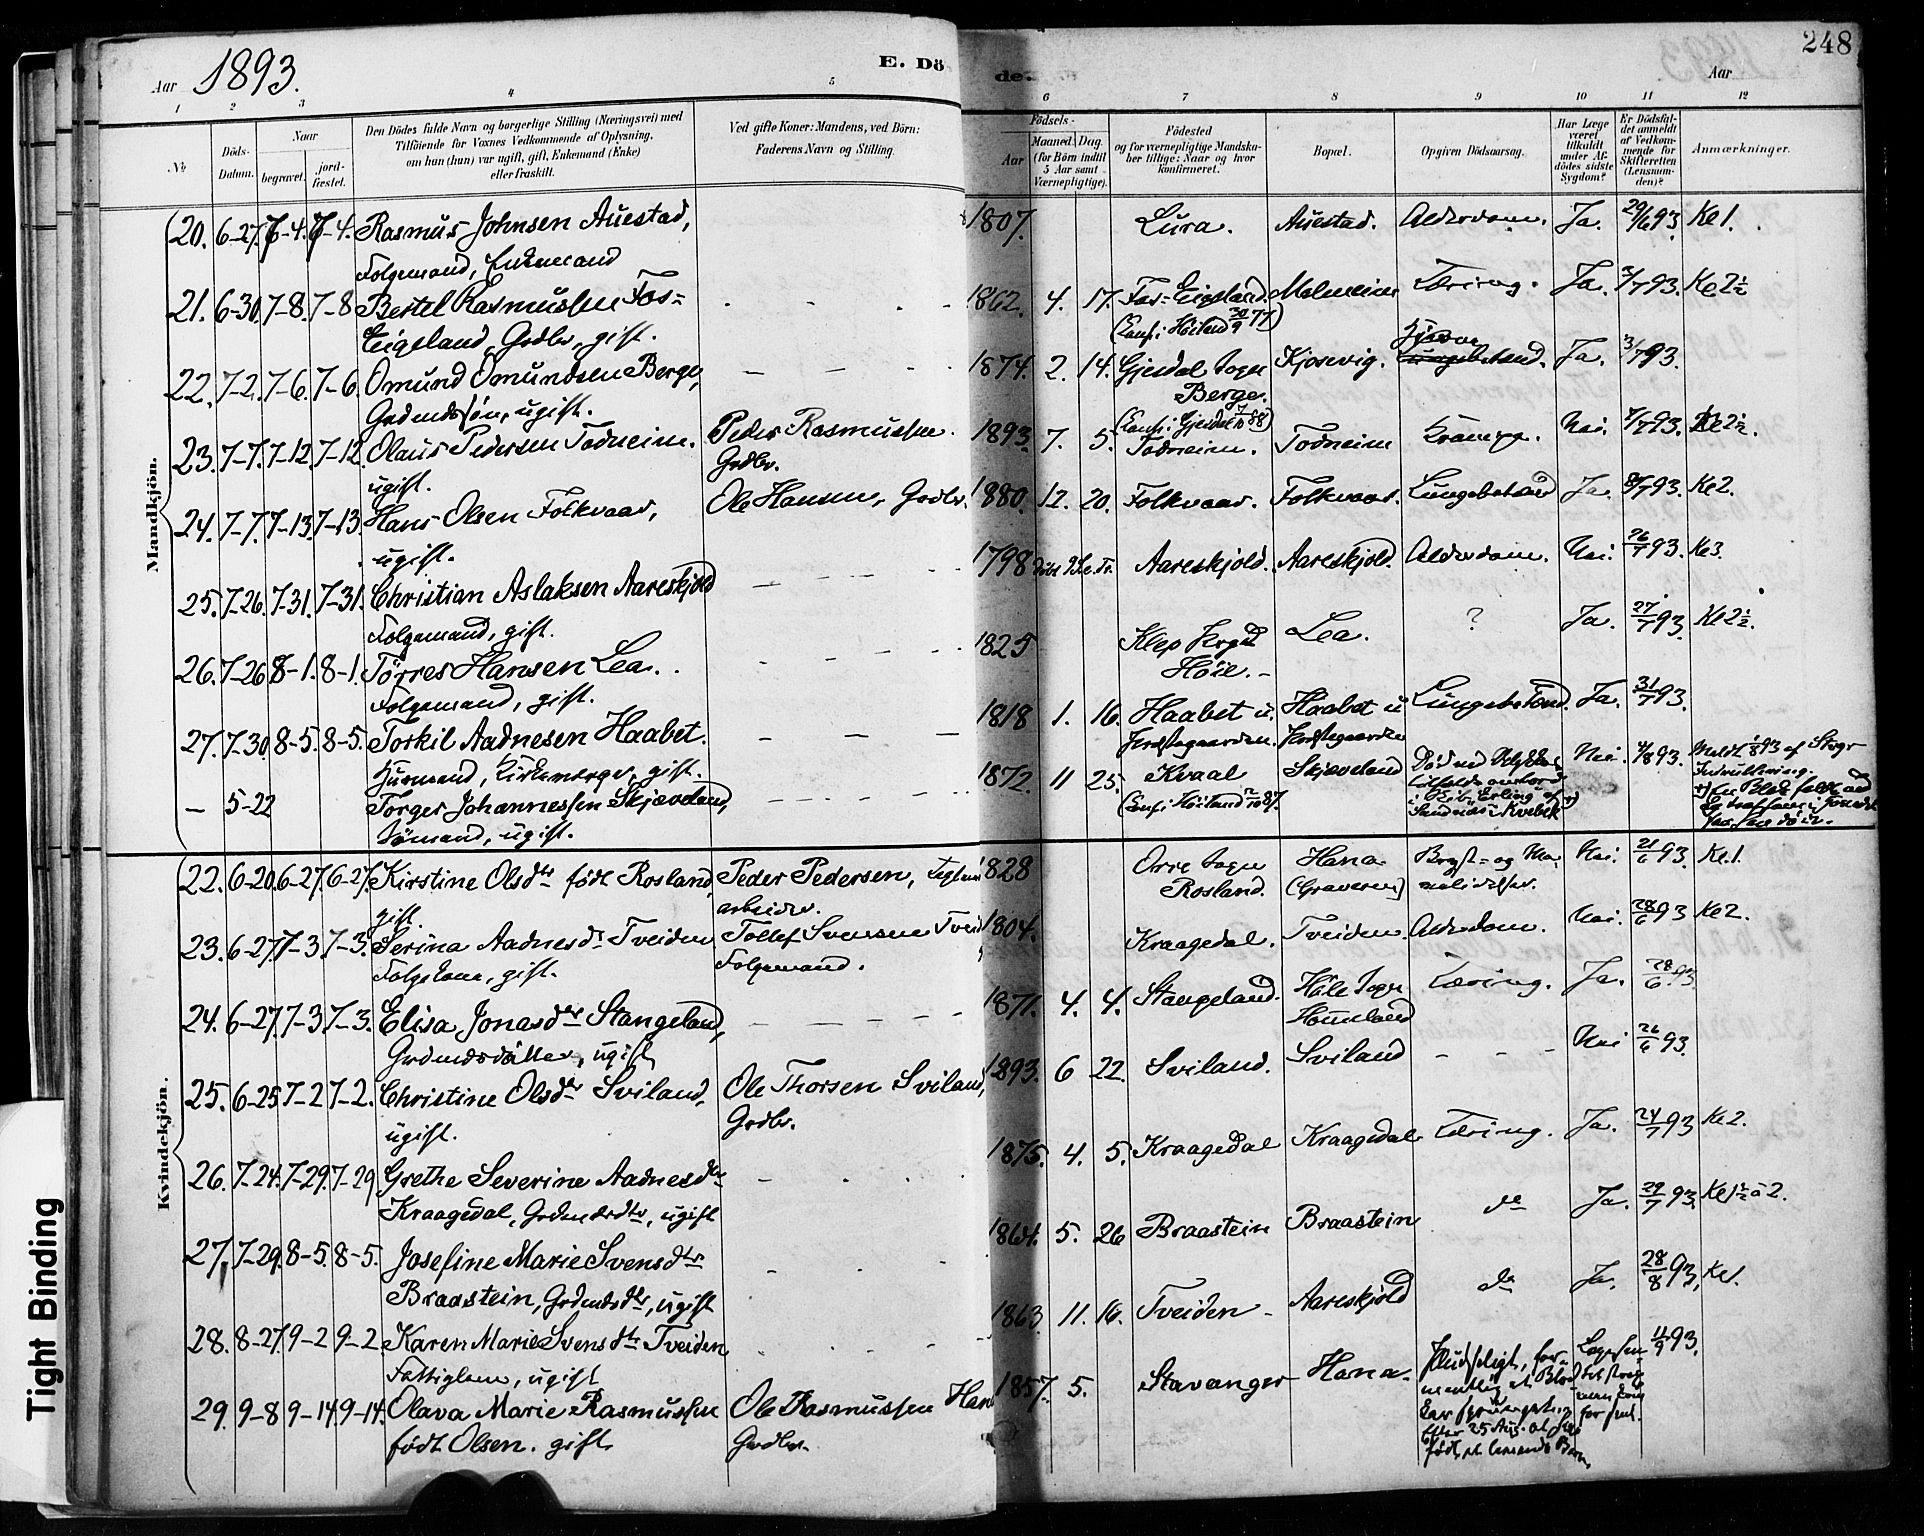 1893.
Aar
E. Dö
de.
Aar
248
1 2 3 4 5 6 7 8 9 10 11 12
No
Döds-Datum.
Naar
begravet.
jord-fæstet.
Den Dödes fulde Navn og borgerlige Stilling (Næringsvei) med
Tilföiende for Voxnes Vedkommende af Oplysning,
om han (hun) var ugift, gift, Enkemand (Enke)
eller fraskilt.
Ved gifte Koner: Mandens, ved Börn:
Faderens Navn og Stilling.
Födsels-
Aar
Maaned. Dag.
(for Börn indtil
5 Aar samt
Værnepligtige).
Födested
og for værnepligtige Mandska-
ber tillige: Naar og hvor
konfirmeret.
Bopæl.
Opgiven Dödsaarsag.
Har Læge
været
tilkaldt
under Af-
dödes sidste
Sygdom?
Er Dödsfal-
det anmeldt
af Vedkom-
mende for
Skifteretten
(Lensman-
den)?
Anmærkninger.
Mandkjön.
20. 6-27. 7-4. 7-4. Rasmus Johnsen Auestad, 1807. Lura. Auestad. Alderdom. Ja. 29/6 93. Ke 1.
Folgemand, Enkemand
21. 6-30. 7-8. 7-8 Bertel Rasmussen Fos- 1862. 4. 17. Fos-Eigeland. Malmeim Tæring. Ja. 3/7 93. Ke 2½
Eigeland, Grdbr, gift. (Conf. i Höiland 30/9 77)
22. 7-2. 7-6. 7-6. Omund Omundsen Berge, 1874. 2. 14. Gjesdal Sogn Kjosevig. Ja. 3/7 93.
Grdmdssøn, ugift. Berge.
(Conf. i Gjesdal 7/10 88)
23. 7-7. 7-12. 7-12. Olaus Pedersen Todneim. Peder Rasmussen 1893. 7. 5. Todneim. Todneim Krampe. Nei. 7/7 93. Ke 2½.
ugift. Grdbr.
24. 7-7. 7-13. 7-13. Hans Olsen Folkvaar, Ole Hansen, Grdbr. 1880. 12. 20. Folkvaar. Folkvaar. Lungebetænd Ja. 8/7 93. Ke 2.
ugift.
25. 7-26. 7-31. 7-31. Christian Aslaksen Aareskjold 1798 Aareskjold. Aareskjold. Alderdom. Nei. 26/7 93. Ke 3.
Folgemand, gift.
26. 7-26 8-1. 8-1. Tørres Hansen Lea. 1825 Klep Prgd Lea. ? Ja. 27/7 93. Ke 2½.
Folgemand, gift. Höie.
27. 7-30. 8-5. 8-5. Torkil Aadnesen Haabet. 1818 1. 16. Haabet u. Haabet u Lungebetænd. Ja. 31/7 93.
Husmand, Kirkeverge, gift. Præstegaarden. Præstegaarden
— 5-22 Torger Johannessen Skjæveland, 1872. 11 25. Kvaal Skjæveland Nei. 4/8 93.
Sömand, ugift. (Conf. i Höiland 2/10 87.
Kvindekjön.
22. 6-20. 6-27. 6-27. Kirstine Olsdtr født Rosland, Peder Pedersen, Tegl 1828 Orre Sogn Hana Bryst- og Ma- Nei. 21/6 93. Ke 1.
gift. arbeider. Rosland. (Graveren) velidelser.
23. 6-27. 7-3. 7-3. Serina Aadnesdr Tveiden Tollef Svensen Tveid 1804. Kraagedal. Tveiden. Alderdom. Nei. 28/6 93 Ke 2.
Folgekone, gift. Folgemand.
24. 6-27. 7-3. 7-3. Elisa Jonasdtr Stangeland, 1871. 4. 4. Stangeland. Höle Sogn Tæring. Ja. 28/6 93
Grdmdsdatter, ugift Hommeland
25. 6-25 7-2 7-2. Christine Olsdtr Sviland, Ole Thorsen Sviland, 1893. 6 22. Sviland. Sviland Nei 26/6 93.
ugift. Grdbr.
26. 7-24. 7-29. 7-29. Grethe Severine Aadnesdtr 1875. 4. 5. Kraagedal Kraagedal Tæring. Ja. 24/7 93 Ke 2.
Kraagedal, Grdmdsdtr, ugift
27. 7-29. 8-5. 8-5. Josefine Marie Svensdtr 1864. 5. 26 Braastein Braastein do Ja. 29/7 93. Ke 1½ à 2.
Braastein, Grdmdsdtr, ugift
28. 8-27. 9-2 9-2. Karen Marie Svensdtr Tveiden 1863. 11. 16. Tveiden Aareskjold do Ja. 28/8 93. Ke 1.
Fattiglem, ugift
29. 9-8 9-14 9-14. Olava Marie Rasmussen Ole Rasmussen Hana 1857. 5. Stavanger Hana. Pludseligt, for- 11/9 93.
født Olsen. gift. Grdbr.
Tight Binding